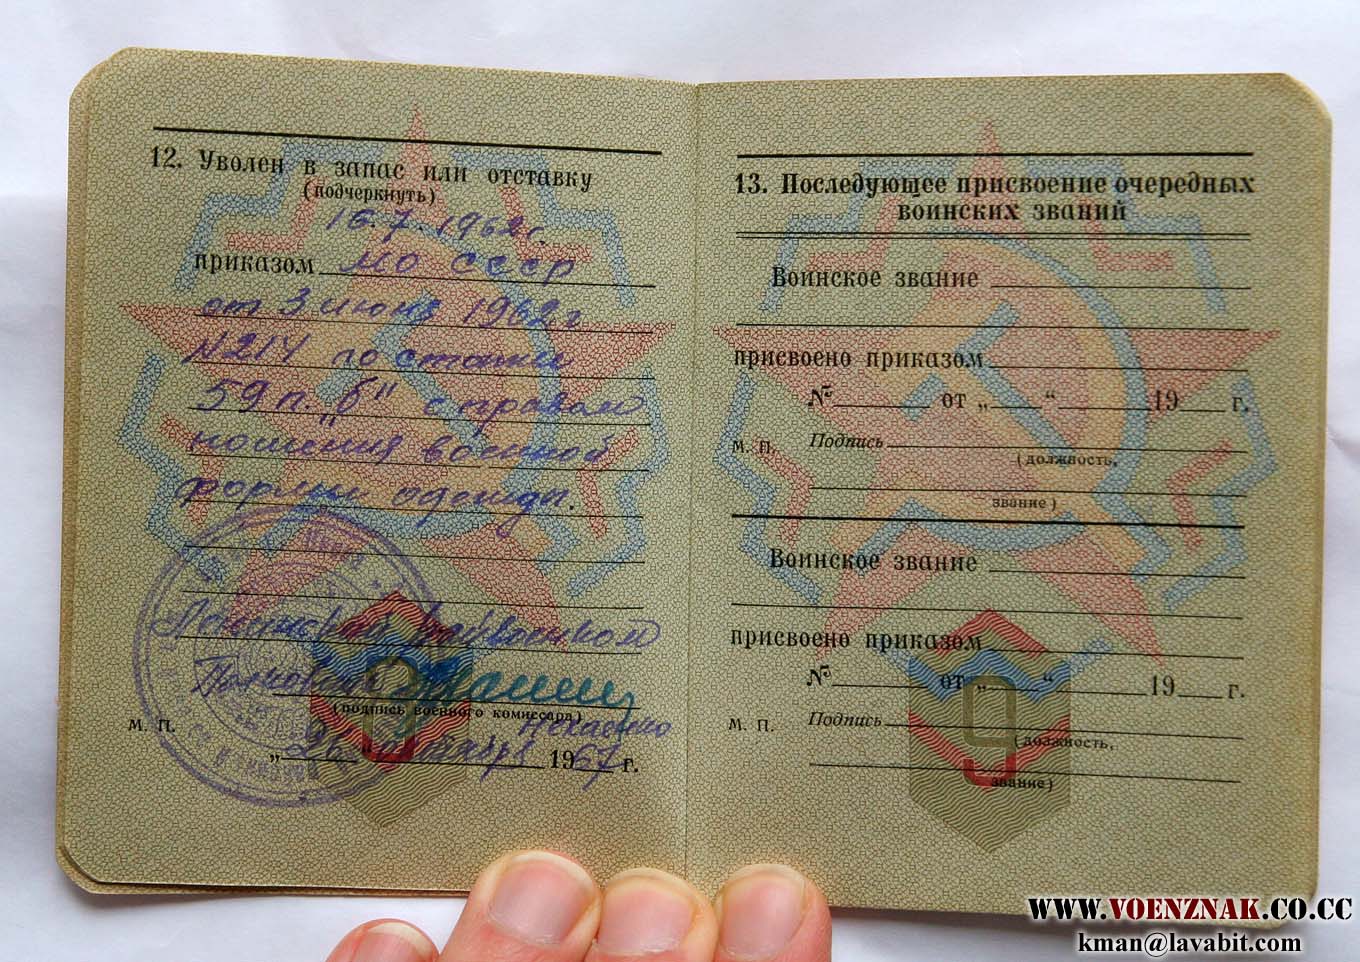 12. Уволен в запас или отставку
(подчеркнуть)
15.7.1962г.
приказом МО СССР
от 3 июня 1962г
N214 по статье
59 п. „б" с правом
ношения военной
формы одежды.
Ленинский райвоенком
Полковник
(подпись военного комиссара)
М. П.
„26" октября 1967 г.
13. Последующее присвоение очередных
воинских званий
Воинское звание
присвоено приказом
№ от „ “ 19 г.
М. П. Подпись
(должность,
звание)
Воинское звание
присвоено приказом
№ от „ “ 19 г.
М. П. Подпись
(должность,
звание)
9
9
WWW.VOENZNAK.CO.CC
kman@lavabit.com